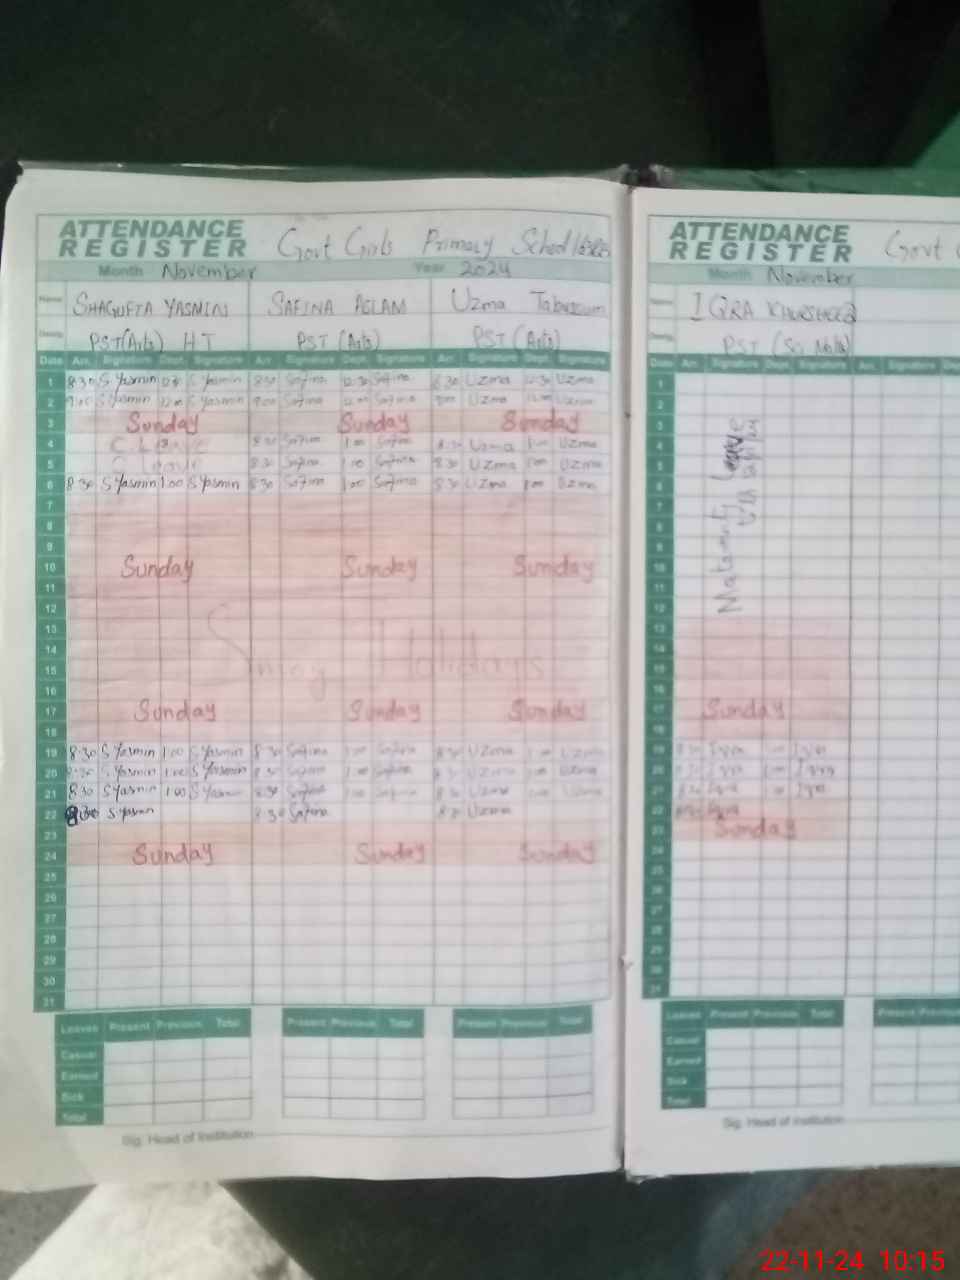 ATTENDANCE REGISTER Govt Girls Primary School
Month November Year 2024
Name SHAGUFTA YASMIN SAFINA ASLAM Uzma Tabassum
PST(Arts) HT PST (Arts) PST (Arts)
Date Arr. Signature Dept. Signature Arr. Signature Dept. Signature Arr. Signature Dept. Signature
1 8:30 S Yasmin 12:30 S Yasmin 8:30 Safina 12:30 Safina 8:30 Uzma 12:30 Uzma
2 9:00 S Yasmin 12:00 S Yasmin 9:00 Safina 12:00 Safina 9:00 Uzma 12:00 Uzma
3 Sunday Sunday Sunday
4 C. Leave 8:30 Safina 1:00 Safina 8:30 Uzma 1:00 Uzma
5 C Leave 8:30 Safina 1:00 Safina 8:30 Uzma 1:00 Uzma
6 8:30 S Yasmin 1:00 S Yasmin 8:30 Safina 1:00 Safina 8:30 Uzma 1:00 Uzma
7
8
9
10 Sunday Sunday Sunday
11
12
13
14
15 Smog Holidays
16
17 Sunday Sunday Sunday
18
19 8:30 S Yasmin 1:00 S Yasmin 8:30 Safina 1:00 Safina 8:30 Uzma 1:00 Uzma
20 8:30 S Yasmin 1:00 S Yasmin 8:30 Safina 1:00 Safina 8:30 Uzma 1:00 Uzma
21 8:30 S Yasmin 1:00 S Yasmin 8:30 Safina 1:00 Safina 8:30 Uzma 1:00 Uzma
22 S Yasmin 8:30 Safina 8:30 Uzma
23
24 Sunday Sunday Sunday
25
26
27
28
29
30
31
Leaves Present Previous Total Present Previous Total Present Previous Total
Casual
Earned
Sick
Total
Sig. Head of Institution
ATTENDANCE REGISTER Govt
Month November
Name IQRA KHURSHEED
PST (Sci Math)
Date Arr. Signature Dept. Signature Arr. Signature
1
2
3
4
5
6
7
8
9
10
11
12
Maternity Leave
13
14
15
16
17 Sunday
18
19 8:30 Iqra 1:00 Iqra
20 8:30 Iqra 1:00 Iqra
21 8:30 Iqra 1:00 Iqra
22 Iqra
23 Sunday
24
25
26
27
28
29
30
31
Leaves Present Previous Total Present Previous
Casual
Earned
Sick
Total
Sig. Head of Institution
22-11-24 10:15